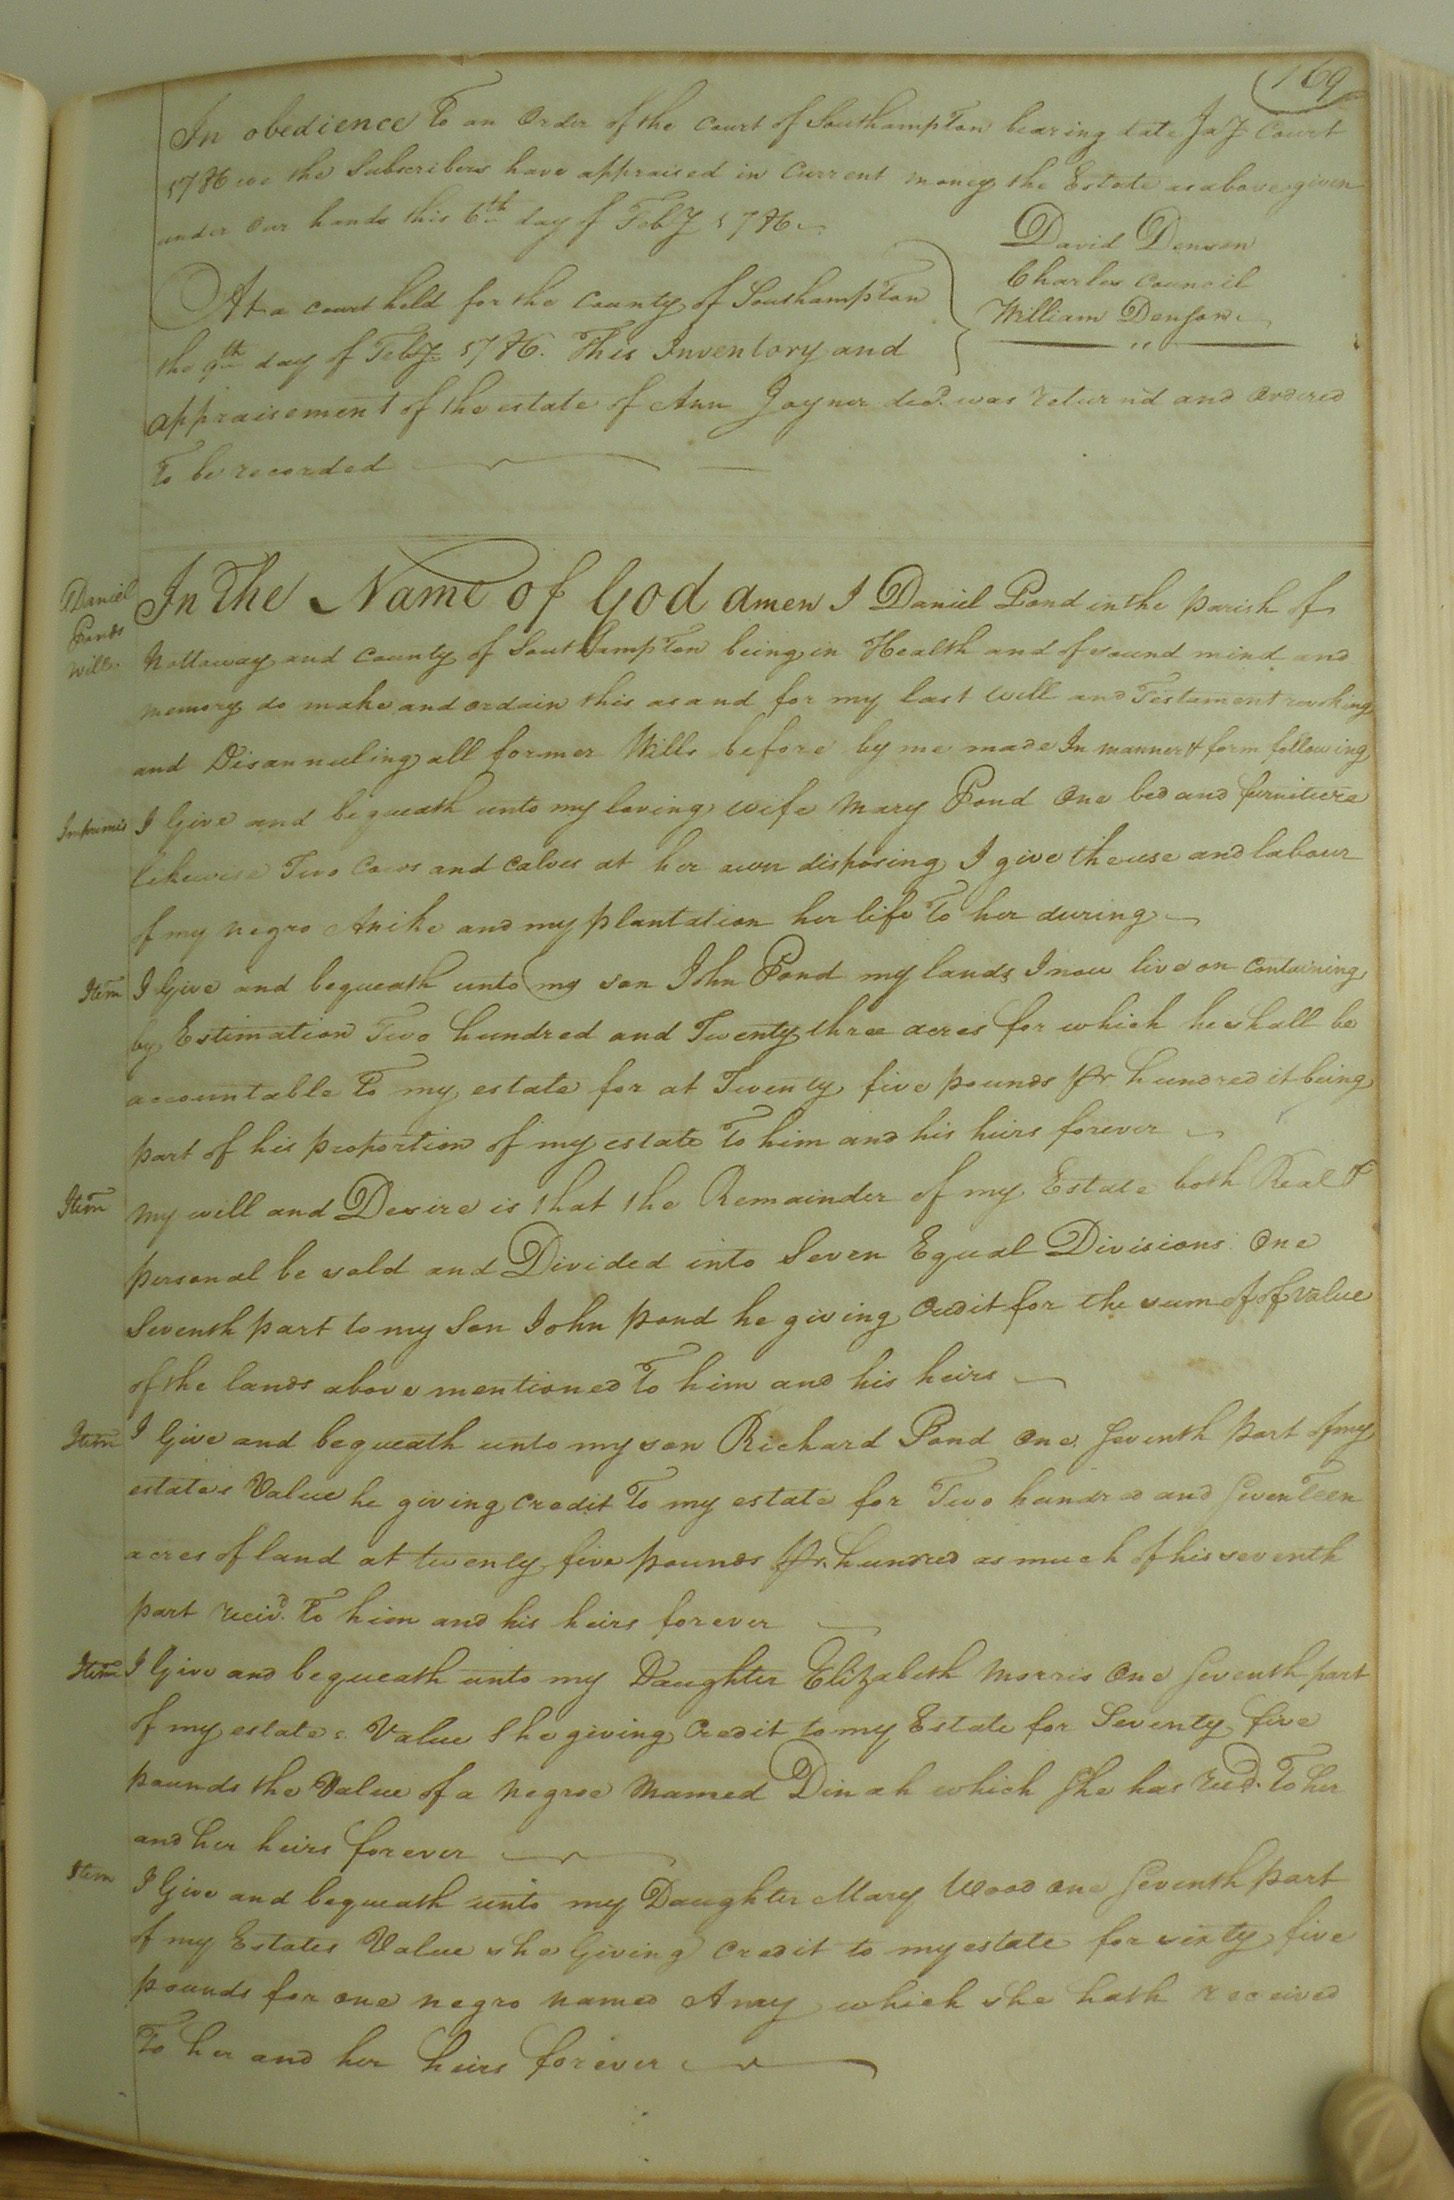 169
In obedience To an Order of the Court of Southampton bearing date Jay Court
1786 we the Subscribers have appraised in Current money the Estate as above given
under Our hands this 6th day of Feby 1786
David Denson
Charles Council
William Denson
At a court held for the County of Southampton
the 9th day of Feby 1786. This Inventory and
appraisement of the estate of Ann Joyner decd. was Return'd and Ordered
To be recorded
Daniel
Ponds
Will.
In The Name of God Amen I Daniel Pond in the parish of
Nottoway and County of Southampton being in Health and of sound mind and
memory do make and ordain this as and for my last Will and Testament revoking
and Disannuling all former Wills before by me made In manner & form following
Imprimis I Give and bequeath unto my loving wife Mary Pond One bed and furniture
likewise Two Cows and Calves at her own disposing I give the use and labour
of my negro Anike and my plantation her life To her during
Item I Give and bequeath unto my son John Pond my lands I now live on Containing
by Estimation Two hundred and Twenty three acres for which he shall be
accountable To my estate for at Twenty five pounds pr. hundred it being
part of his proportion of my estate To him and his heirs forever
Item My will and Desire is that the Remainder of my Estate both Real &
personal be sold and Divided into Seven Equal Divisions One
Seventh part to my Son John pond he giving Credit for the sum of of Value
of the lands above mentioned To him and his heirs
Item I Give and bequeath unto my son Richard Pond One Seventh part of my
estates Value he giving Credit To my estate for Two hundred and SevenTeen
acres of land at twenty five pounds pr. hundred as much of his seventh
part Receivd. To him and his heirs forever
Item I Give and bequeath unto my Daughter Elizabeth Morris One Seventh part
of my estates Value She giving Credit to my Estate for Seventy five
pounds the Value of a Negroe Mamed Dinah which She has Recd. To her
and her heirs forever
Item I Give and bequeath unto my Daughter Mary Wood one Seventh part
of my Estates Value she Giving Credit to my estate for sixty five
pounds for one negro named Amy which she hath received
To her and her heirs forever